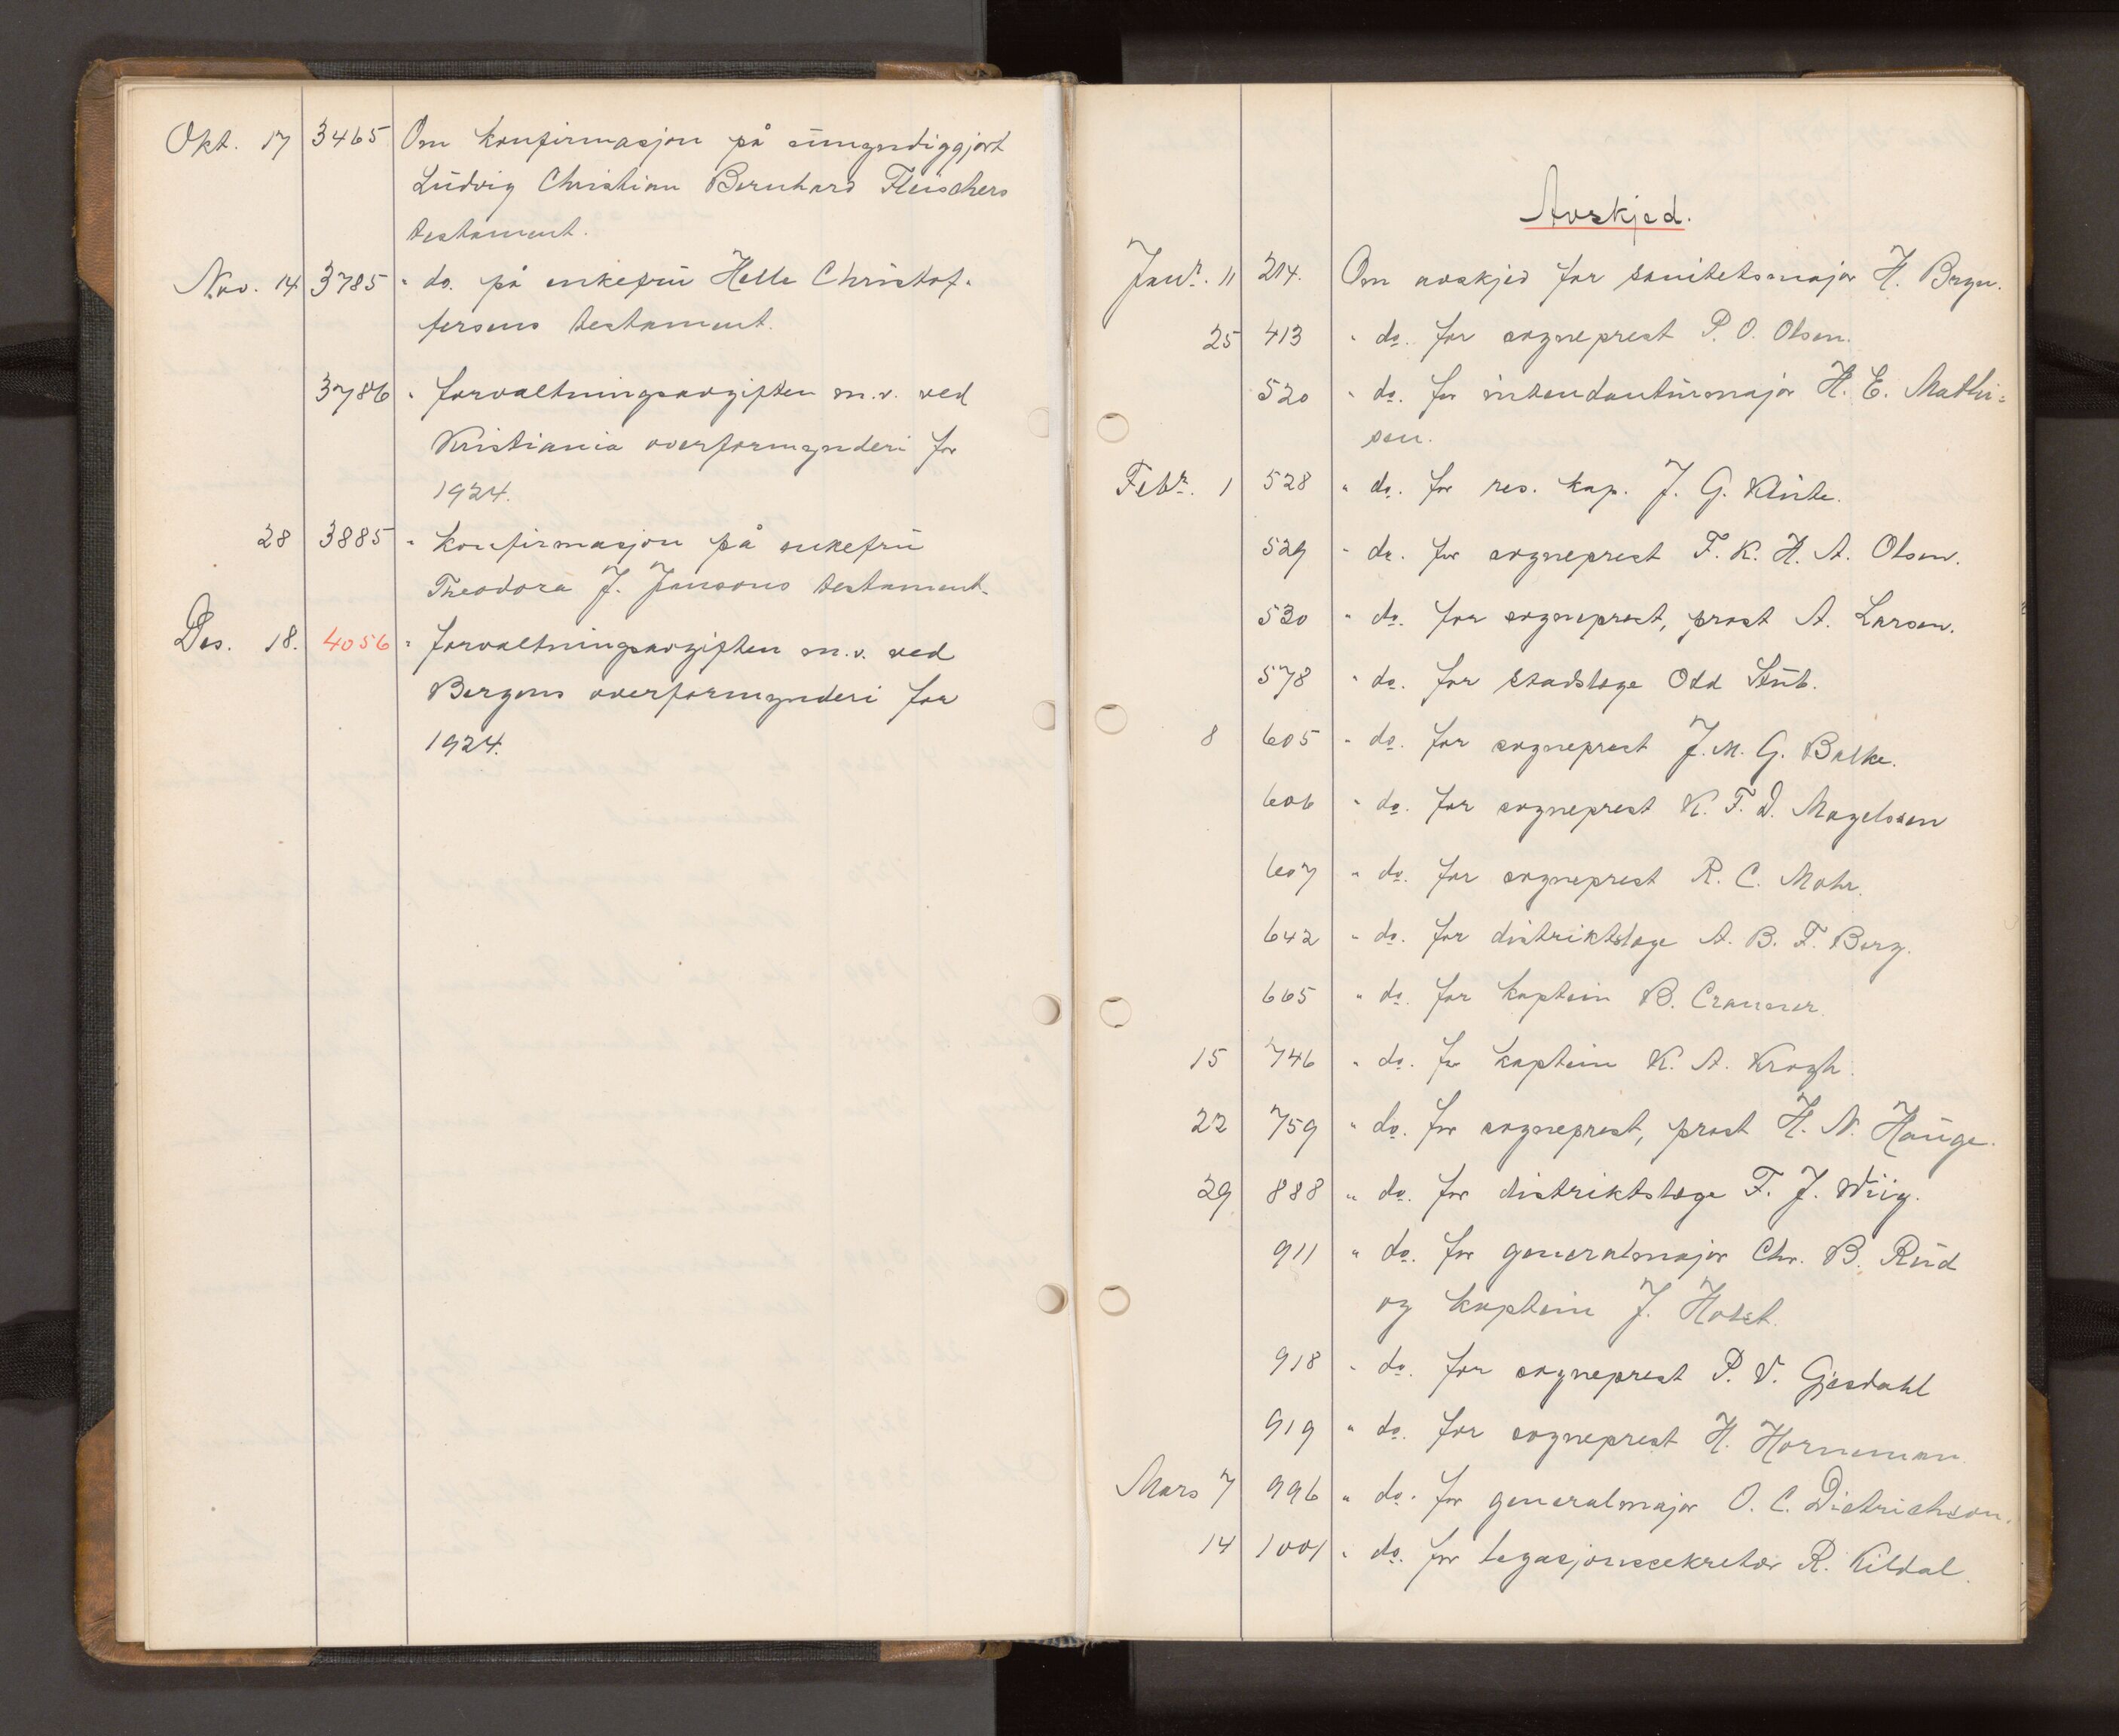 Okt. 17 3465 Om konfirmasjon på umyndiggjort
Ludvig Christian Bernhard Fleischers
testament.
Nov. 14 3785 " do. på enkefru Helle Christof-
fersens testament.
3786 " forvaltningsavgiften m.v. ved
Kristiania overformynderi for
1924.
28 3885 " konfirmasjon på enkefru
Theodora J. Jansons testament.
Des. 18. 4056 " forvaltningsavgiften m.v. ved
Bergens overformynderi for
1924.
Avskjed.
Janr. 11 214. Om avskjed for sanitetsmajor H. Bryn.
25 413 " do. for sogneprest P. O. Olsen.
520 " do. for intendanturmajor H. E. Mathi-
sen.
Febr. 1 528 " do. for res. kap. J. G. Klinte.
529 " do. for sogneprest F. K. H. A. Olsen.
530 " do. for sogneprest, prost A. Larsen.
578 " do. for stadslæge Odd Stub.
8 605 " do. for sogneprest J. M. G. Balke.
606 " do. for sogneprest K. F. D. Magelssen
607 " do. for sogneprest R. C. Mohr.
642 " do. for distriktslæge A. B. F. Berg.
665 " do. for kaptein B. Cranner.
15 746 " do. for kaptein K. A. Krogh.
22 759 " do. for sogneprest, prost H. N. Hauge.
29 888 " do. for distriktslæge F. J. Wiig.
911 " do. for generalmajor Chr. B. Rud
og kaptein J. Holst.
918 " do. for sogneprest P. V. Gjesdahl
919 " do. for sogneprest H. Horneman
Mars 7 996 " do. for generalmajor O. C. Dietrichson.
14 1001 " do. for legasjonssekretær R. Kildal.